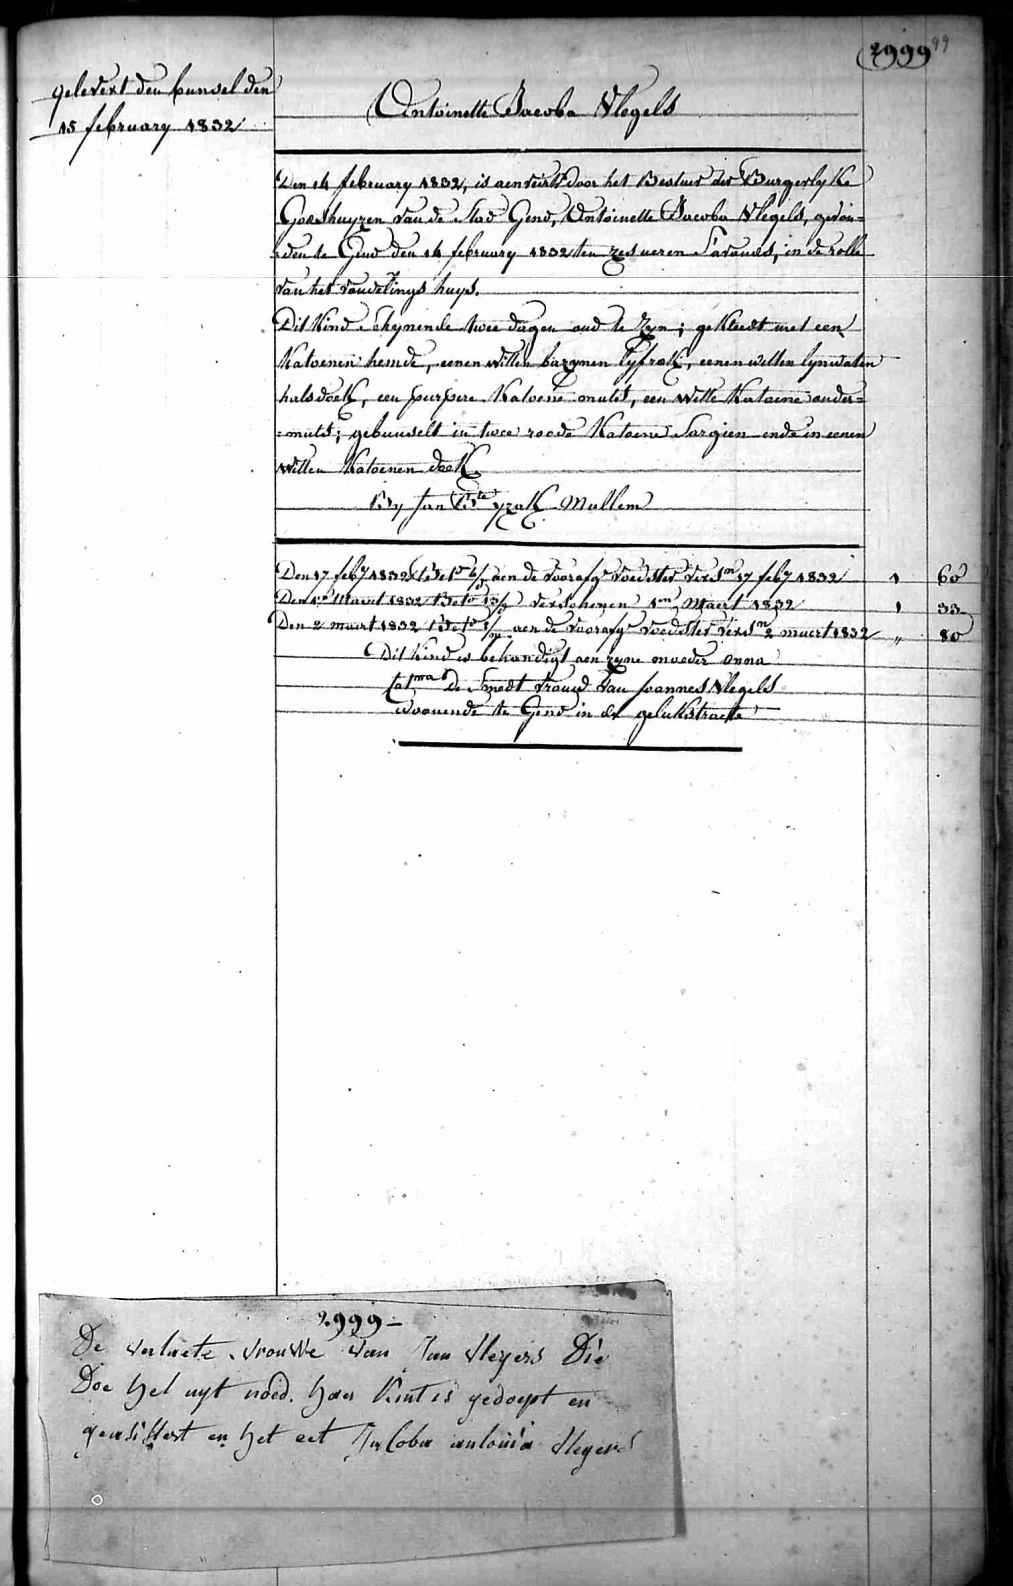 2999 99
gelevert den bunsel den
15 february 1832
Antoinette Jacoba Vlegels
Den 14 february 1832, is aenveird door het Bestuer der Burgerlyke
Godshuyzen van de Stad Gend, Antoinette Jacoba Vlegels, gevon=
=den te Gend den 14 february 1832 ten zes ueren S'avonds, in de rolle
van het vondelings huys.
Dit Kind schynende twee dagen oud te zyn; gekleedt met een
Katoenen hemde, eenen witten bazynen lyfrok, eenen witten lynwaten
halsdoek, een purpere Katoene muts, een witte Katoene onder=
=muts; gebunselt in twee roode Katoene Sargien ende in eenen
witten Katoenen doek.
By Jan Bte yzak Mullem
Den 17 feby 1832 aen de voorzgde voedster versn 17 feby 1832 1 60
Den 1en Maert 1832 verschenen 1en Maert 1832 1 33
Den 2 maert 1832 aen de voorzgde voedster versn 2 maert 1832 „ 80
Dit Kind is behandigt aen zyne moeder Anna
Catma De Smedt vrouw van Joannes Vlegels
woonende te Gend in de geluckstraete
2999 –
De verlaete vrouwe van Jan vlegers Die
Doe hel uyt noed. haer Kint is gedoept en
en het eet Jacoba antonia vlegers